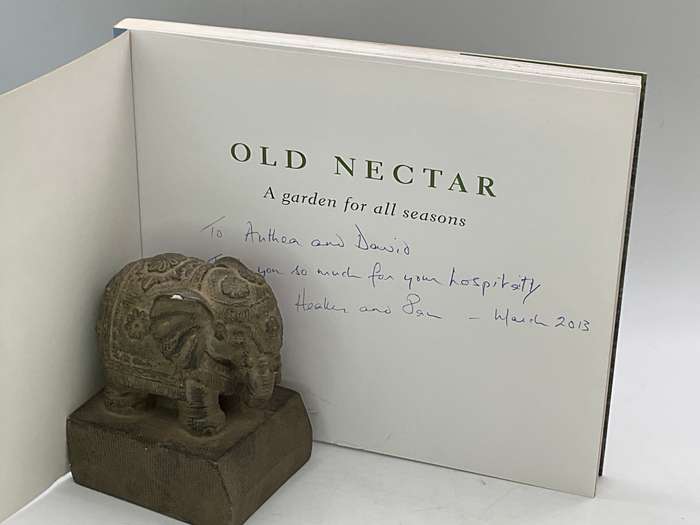 OLD NECTAR
A garden for all seasons
To Anthea and David
you so much for your hospitality
and Pam - March 2013